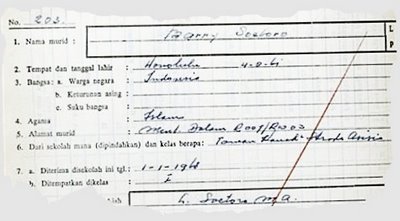 No. 203.
1. Nama murid : Barry Soetoro L P
2. Tempat dan tanggal lahir : Honolulu 4-8-61
3. Bangsa : a. Warga negara : Indonesia
b. Keturunan asing :
c. Suku bangsa :
4. Agama : Islam
5. Alamat murid : Ment Dalam R007/RW03
6. Dari sekolah mana (dipindahkan) dan kelas berapa :
7. a. Diterima disekolah ini tgl.: 1-1-1968
b. Ditempatkan dikelas : I
L. Soetoro M.A.